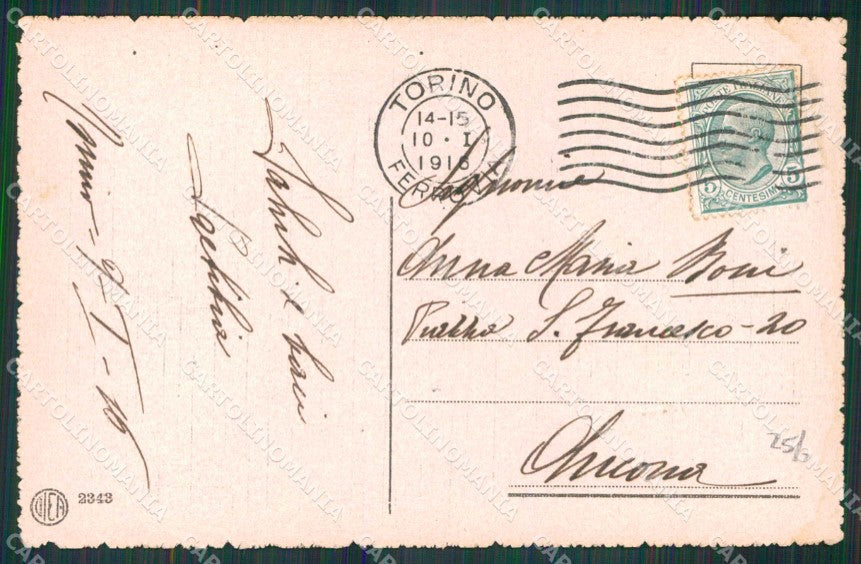 TORINO
14-15
10 · I
1916
FERROVIA
POSTE ITALIANE
5 5
CENTESIMI
Anna Maria Boni
Piazza S. Francesco - 20
Ancona
Saluti e baci
Torino - 9-I-16
25/
2343
CARTOLINOMANIA